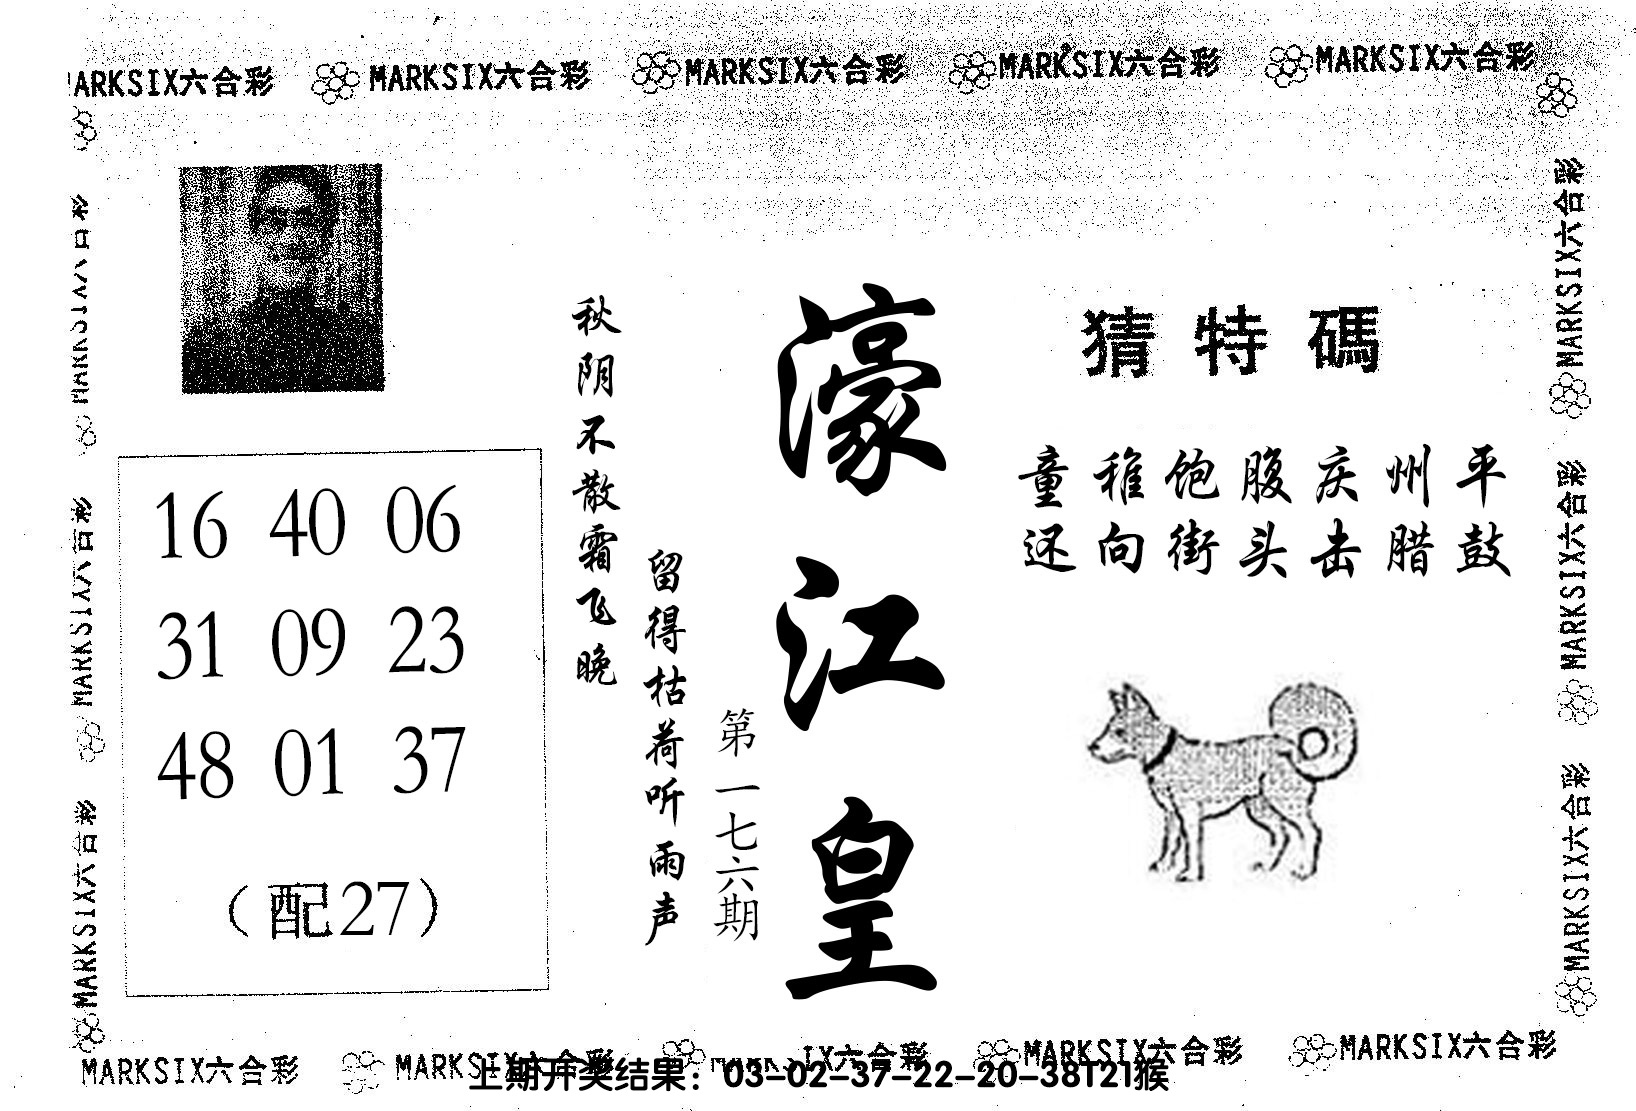 MARKSIX六合彩 MARKSIX六合彩 MARKSIX六合彩 MARKSIX六合彩 MARKSIX六合彩
MARKSIX六合彩
MARKSIX六合彩
MARKSIX六合彩
16 40 06
31 09 23
48 01 37
(配27)
秋阴不散霜飞晚
留得枯荷听雨声
第一七六期
濠江皇
猜特碼
童稚饱腹庆州平
还向街头击腊鼓
MARKSIX六合彩
MARKSIX六合彩
MARKSIX六合彩
MARKSIX六合彩 MARKSIX六合彩 MARKSIX六合彩 MARKSIX六合彩 MARKSIX六合彩
上期开奖结果：03-02-37-22-20-38T21猴